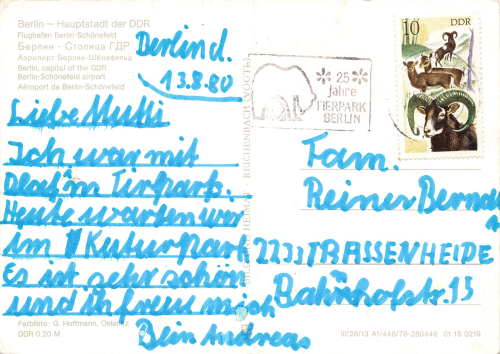 Berlin – Hauptstadt der DDR
Flughafen Berlin-Schönefeld
Берлин - Столица ГДР
Аэропорт Берлин Шёнефельд
Berlin, capital of the GDR
Berlin-Schönefeld airport
Aéroport de Berlin-Schönefeld
Berlin d.
13.8.80
Liebe Mutti
Ich war mit
im Tierpark.
Heute warten wir
im Kuturpark
Es ist sehr schön
und ich freu mich
Dein Andreas
Farbfoto: G. Hoffmann,
DDR 0,20 M
BILD UND HEIMAT · REICHENBACH (VOGTL)
25
Jahre
TIERPARK
BERLIN
10
DDR
Fam.
Reiner Bernd
2233 TRASSENHEIDE
Bahnhofstr. 15
III/26/13 A1/446/78-280446 01 15 0219